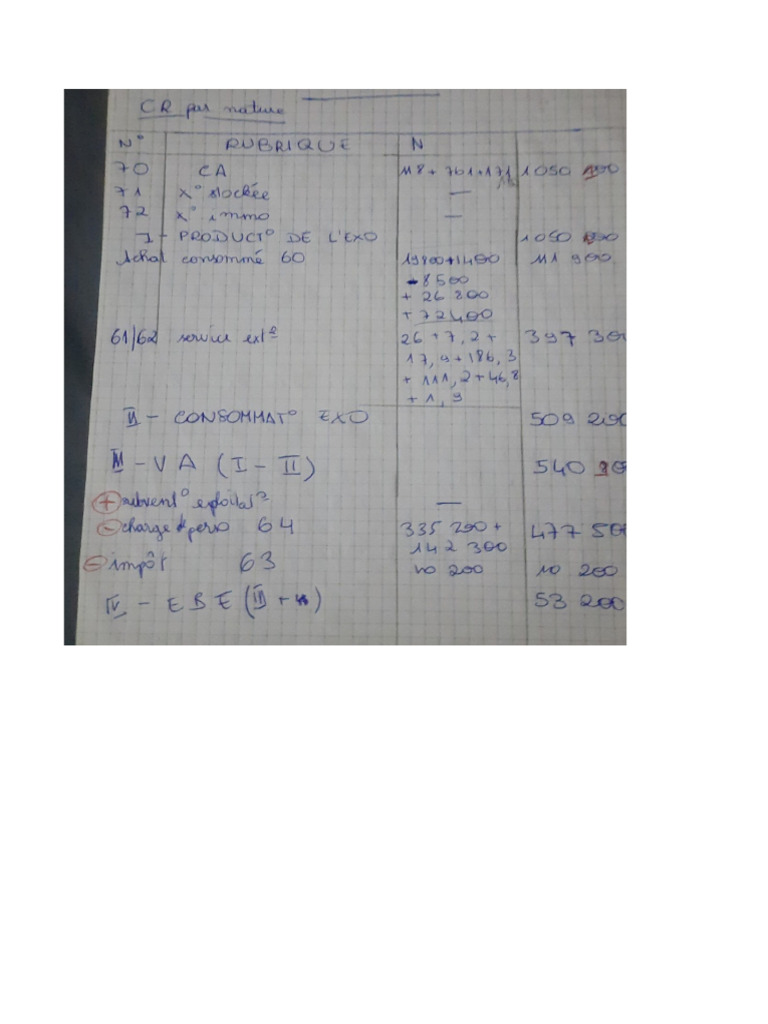 CR par nature
N° RUBRIQUE N
70 CA 118 + 761 + 171 1050
71 X° stockée —
72 X° immo —
I - PRODUCT° DE L'EXO 1050
Achat consommé 60 19800+1400 111 900
-8500
+ 26 800
+ 72400
61/62 service ext 26 + 7,2 + 397 30
17,9 + 186,3
+ 111,2 + 46,8
+ 1,9
II - CONSOMMAT° EXO 509 20
III - VA (I - II) 540
+ subvent° —
- charge perso 64 335 200 + 477 50
142 300
- impôt 63 10 200 10 200
IV - EBE 53 200